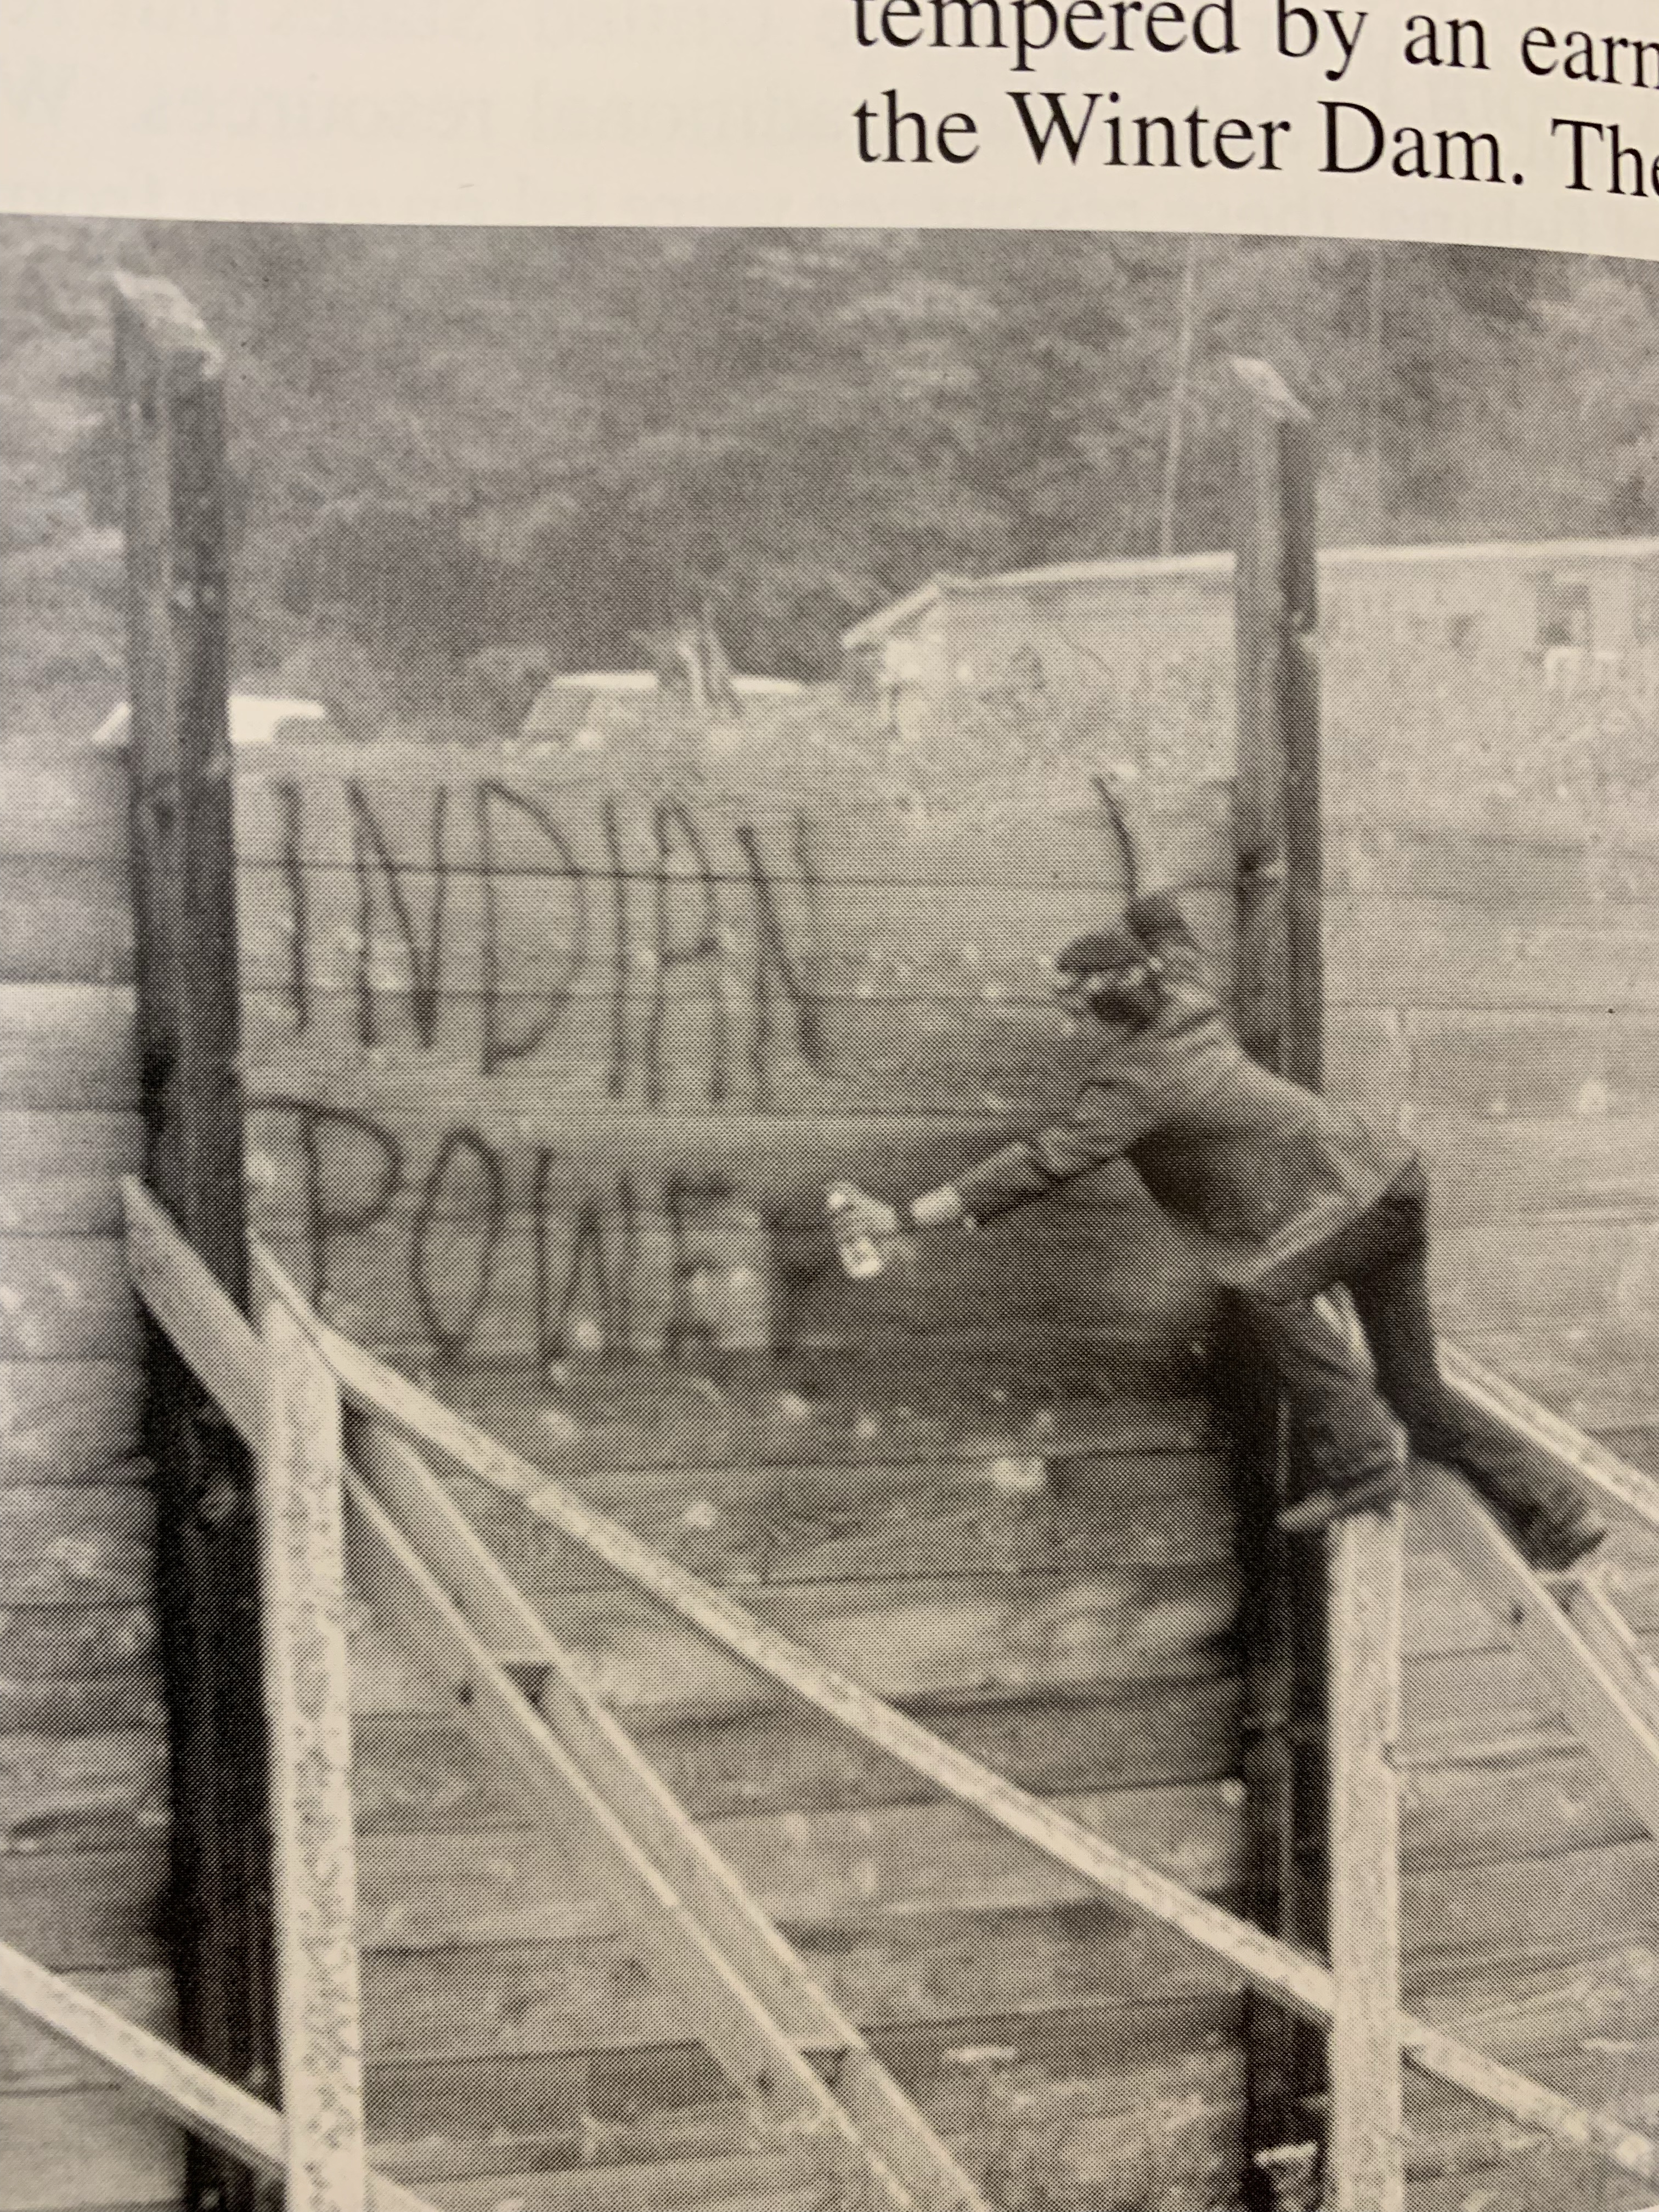 tempered by an earn
the Winter Dam. The
INDIAN
POWE